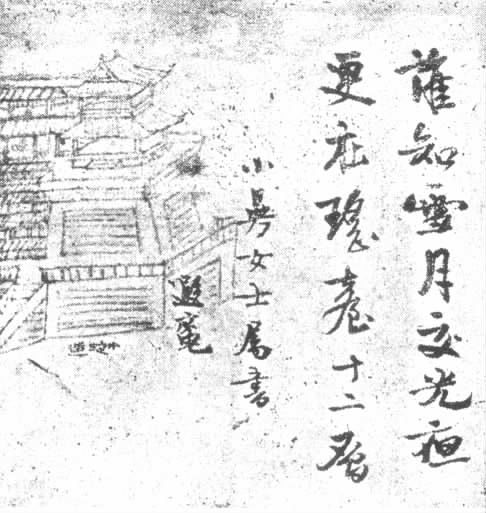 誰知雪月交光夜
更在瑤臺十二層
小曼女士屬書
遐菴